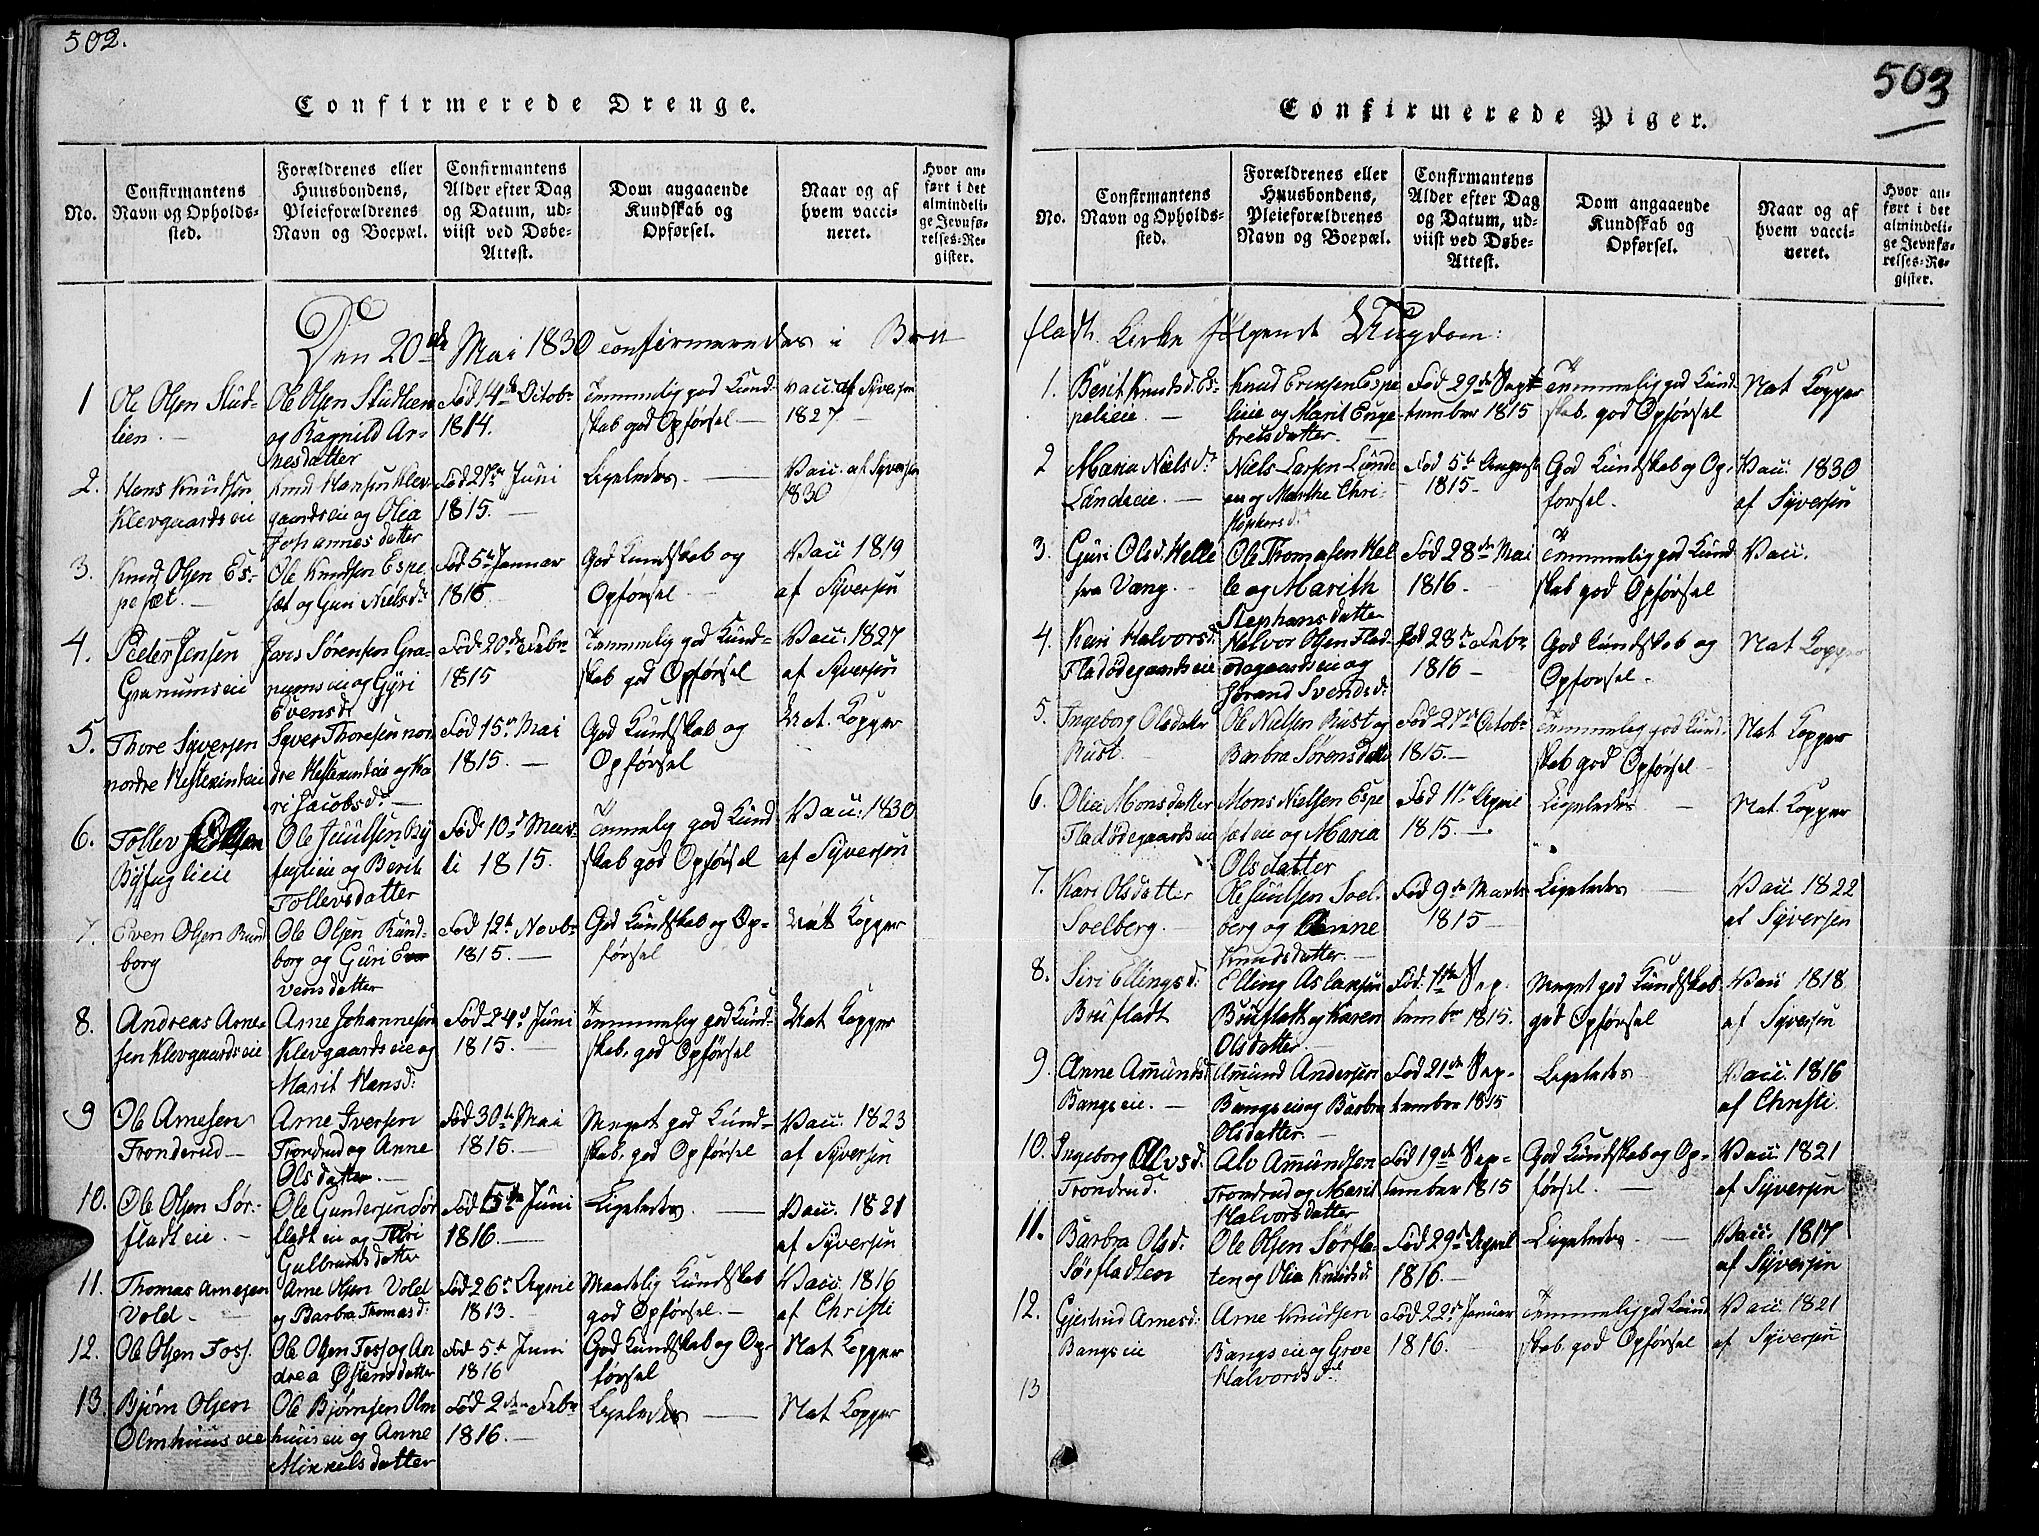 502.
Confirmerede Drenge.
No.
Confirmantens
Navn og Opholds-
sted.
Forældrenes eller
Huusbondens,
Pleieforældrenes
Navn og Boepæl.
Confirmantens
Alder efter Dag
og Datum, ud-
viist ved Døbe-
Attest.
Dom angaaende
Kundskab og
Opførsel.
Naar og af
hvem vacci-
neret.
Hvor an-
ført i det
almindeli-
ge Jevnfø-
relses-Re-
gister.
Den 20de Mai 1830 confirmeredes i Bru
1
Ole Olsen Stud-
lien.
Ole Olsen Studlien
og Ragnild Ar-
nesdatter
Fød 4de Octobr
1814.
Temmelig god Kund-
skab god Opførsel
vacc: af Syversen
1827
2.
Hans Knudsen
Klevgaardseie
Knud Hansen Klev-
gaardseie og Olia
Johannesdatter
Fød 27de Juni
1815.
Ligeledes
Vacc. af Syversen
1830
3.
Knud Olsen Es-
peset.
Ole Knudsen Espe-
sæt og Guri Nielsd:
Fød 5te Januar
1816
God Kundskab og
Opførsel
Vacc 1819
af Syversen
4.
Peder Jensen
Granumseie
Jens Sørensen Gra-
numseie og Gyri
Evensd:
Fød 20de Febr
1815
Temmelig god Kund-
skab god Opførsel
Vacc: 1827
af Syversen
5.
Thore Syversen
nordre Hestekindeie
Syver Thoresen nor
dre Hestekindeie og Ka
ri Jacobsd:
Fød 15de Mai
1815.
God Kundskab og
Opførsel
Nat. Kopper
6.
Tollev Olsen
Byfuglieie
Ole Juulsen By
fuglieie og Berit
Tollevsdatter
Fød 10d Mar-
ti 1815.
Temmelig god Kund
skab god Opførsel
Vacc: 1830
af Syversen
7.
Even Olsen Rund
borg
Ole Olsen Rund-
borg og Guri E
vensdatter
Fød 12te Novbr
1815.
God Kundskab og Op-
førsel
Nat Kopper
8.
Andreas Arne-
sen Klevgaardseie
Arne Johannesen
Klevgaardseie og
Marit Hansd:
Fød 24d Juni
1815.
Temmelig god Kund-
skab, god Opførsel
Nat Kopper
9
Ole Arnesen
Tronderud
Arne Iversen
Trondrud og Anne
Olsdatter.
Fød 30te Mai
1815.
Meget god Kund-
skab, god Opførsel
Vacc: 1823
af Syversen
10.
Ole Olsen Sør-
fladteie.
Ole Gundersen Sør
fladteie og Thri
Gulbrandsdatter
Fød 5te Juni
1816.
Ligeledes
Vacc: 1821
af Syversen
11.
Thomas Arnesen
Vold.
Arne Olsen Vold
og Barbra Thomasd:
Fød 26de April
1813.
Maadelig Kundskab
god Opførsel.
Vacc: 1816
af Christi
12.
Ole Olsen Foss.
Ole Olsen Foss og An
drea Østensdatter
Fød 5te Juni
1816
God Kundskab og Op-
førsel
Nat Kopper
13.
Bjørn Olsen
Olmhuuseie
Ole Bjørnsen Olm
huuseie og Anne
Mikkelsdatter
Fød 2den Febr
1816.
Ligeledes
Nat Kopper
503
Confirmerede Piger.
No.
Confirmantens
Navn og Opholds-
sted.
Forældrenes eller
Huusbondens,
Pleieforældrenes
Navn og Boepæl.
Confirmantens
Alder efter Dag
og Datum, ud-
viist ved Døbe-
Attest.
Dom angaaende
Kundskab og
Opførsel.
Naar og af
hvem vacci-
neret.
Hvor an-
ført i det
almindeli-
ge Jevnfø-
relses-Re-
gister.
fladt. Kirke følgende Ungdom:
1.
Berit Knudsd. Es-
pelieie
Knud Ericsen Espe
lieie og Marit Enge
bretsdatter.
Fød 29de Sept
tember 1815
Temmelig god Kund
skab, god Opførsel
Nat Kopper
2
Maria Nielsd:
Lundeeie.
Niels Larsen Lunde
eie og Marthe Chri-
Fød 5te August
1815.
God Kundskab og Op
førsel.
Vacc: 1830
af Syversen
3.
Guri Olsd. Helle
fra Vang.
Ole Thomasen Hel
le og Marith
Stephansdatter
Fød 28de Mai
1816.
Temmelig god Kund
skab god Opførsel
Vacc.
4.
Kari Halvorsd:
Fladødegaardseie
Halvor Olsen Flad-
ødegaardseie og
Jørand Svendsd:
Fød 28de Febr
1816
God Kundskab og
Opførsel.
Nat Kopper
5.
Ingeborg Olsdatter
Rust.
Ole Nielsen Rust og
Barbra Sørensdatter
Fød 27de Octobr
1815.
Temmelig god Kund:
skab god Opførsel
Nat Kopper
6.
Olia Monsdatter
Fladødegaardseie
Mons Nielsen Espe
seteie og Maria
Olsdatter
Fød 11te April
1815.
Ligeledes
Nat. Kopper
7.
Kari Olsdatter
Soelberg.
Ole Juulsen Soel-
berg og Anne
Knudsdatter.
Fød 9de Marts
1815
Ligeledes
Vacc 1822
af Syversen
8.
Siri Ellingsd:
Brufladt
Elling Aslaksen
Brufladt og Karen
Olsdatter
Fød: 1ste Sep-
tembr 1815.
Meget god Kundskab
god Opførsel
Vacc 1818
af Syversen
9.
Anne Amundsd
Bangseie.
Amund Andersen
Bangseie og Barbra
Olsdatter.
Fød 21de Sep-
tember 1815
Ligeledes
Vacc. 1816
af Christi.
10.
Ingeborg Alvsd:
Trondrud.
Alv Amundsen
Trondrud og Marit
Halvorsdatter
Fød 19de Sep-
tember 1815
God Kundskab og Op-
førsel.
Vacc: 1821
af Syversen
11.
Barbra Olsd:
Sørfladten
Ole Olsen Sørfla-
ten og Olia Knudsd:
Fød 29de April
1816.
Ligeledes.
Vacc: 1817
af Syversen
12.
Gjertrud Arnesd:
Bangseie
Arne Knudsen
Bangseie og Groe
Halvordsd:
Fød 22de Januar
1816.
Temmelig god Kund
skab, god Opførsel
Vacc: 1821
af Syversen
13